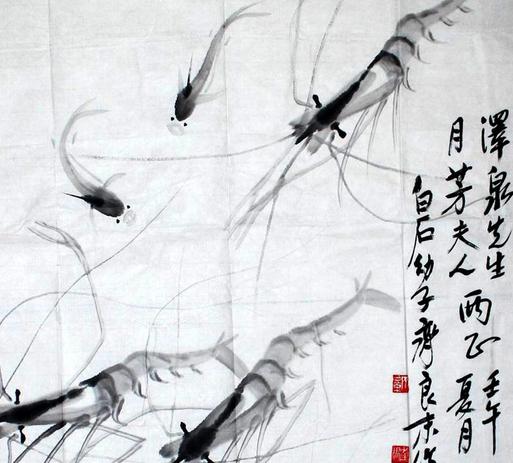 澤泉先生
月芳夫人 两正 壬午夏月
白石幼子齊良末作